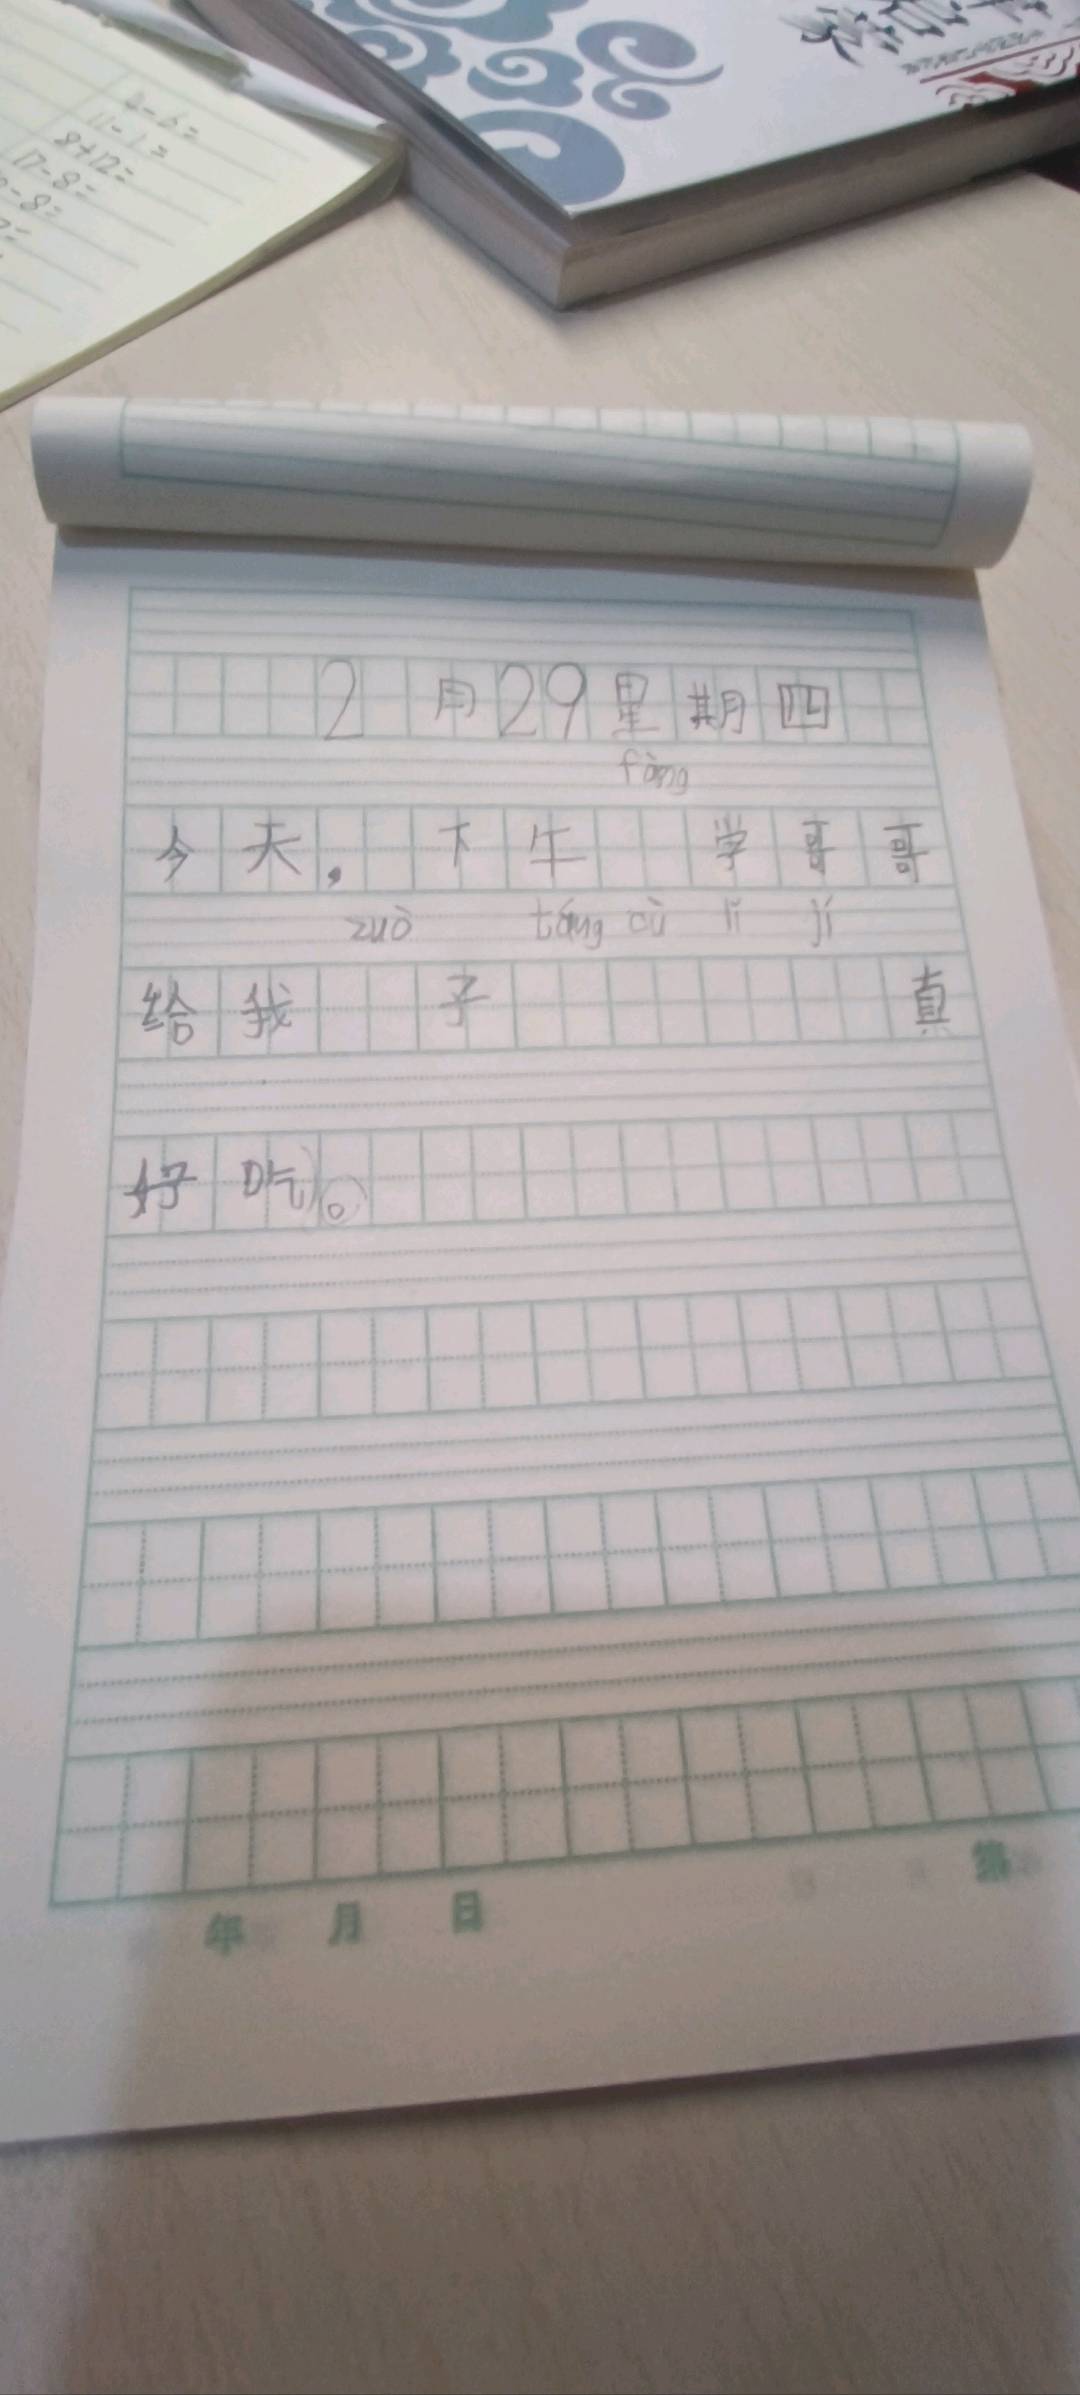 4-6=
11-1=
8+12=
17-8=
-8=
2月29星期四
fàng
今天,下午 学哥哥
zuò táng cù lǐ jí
给我 子 真
好吃。
年 月 日 第